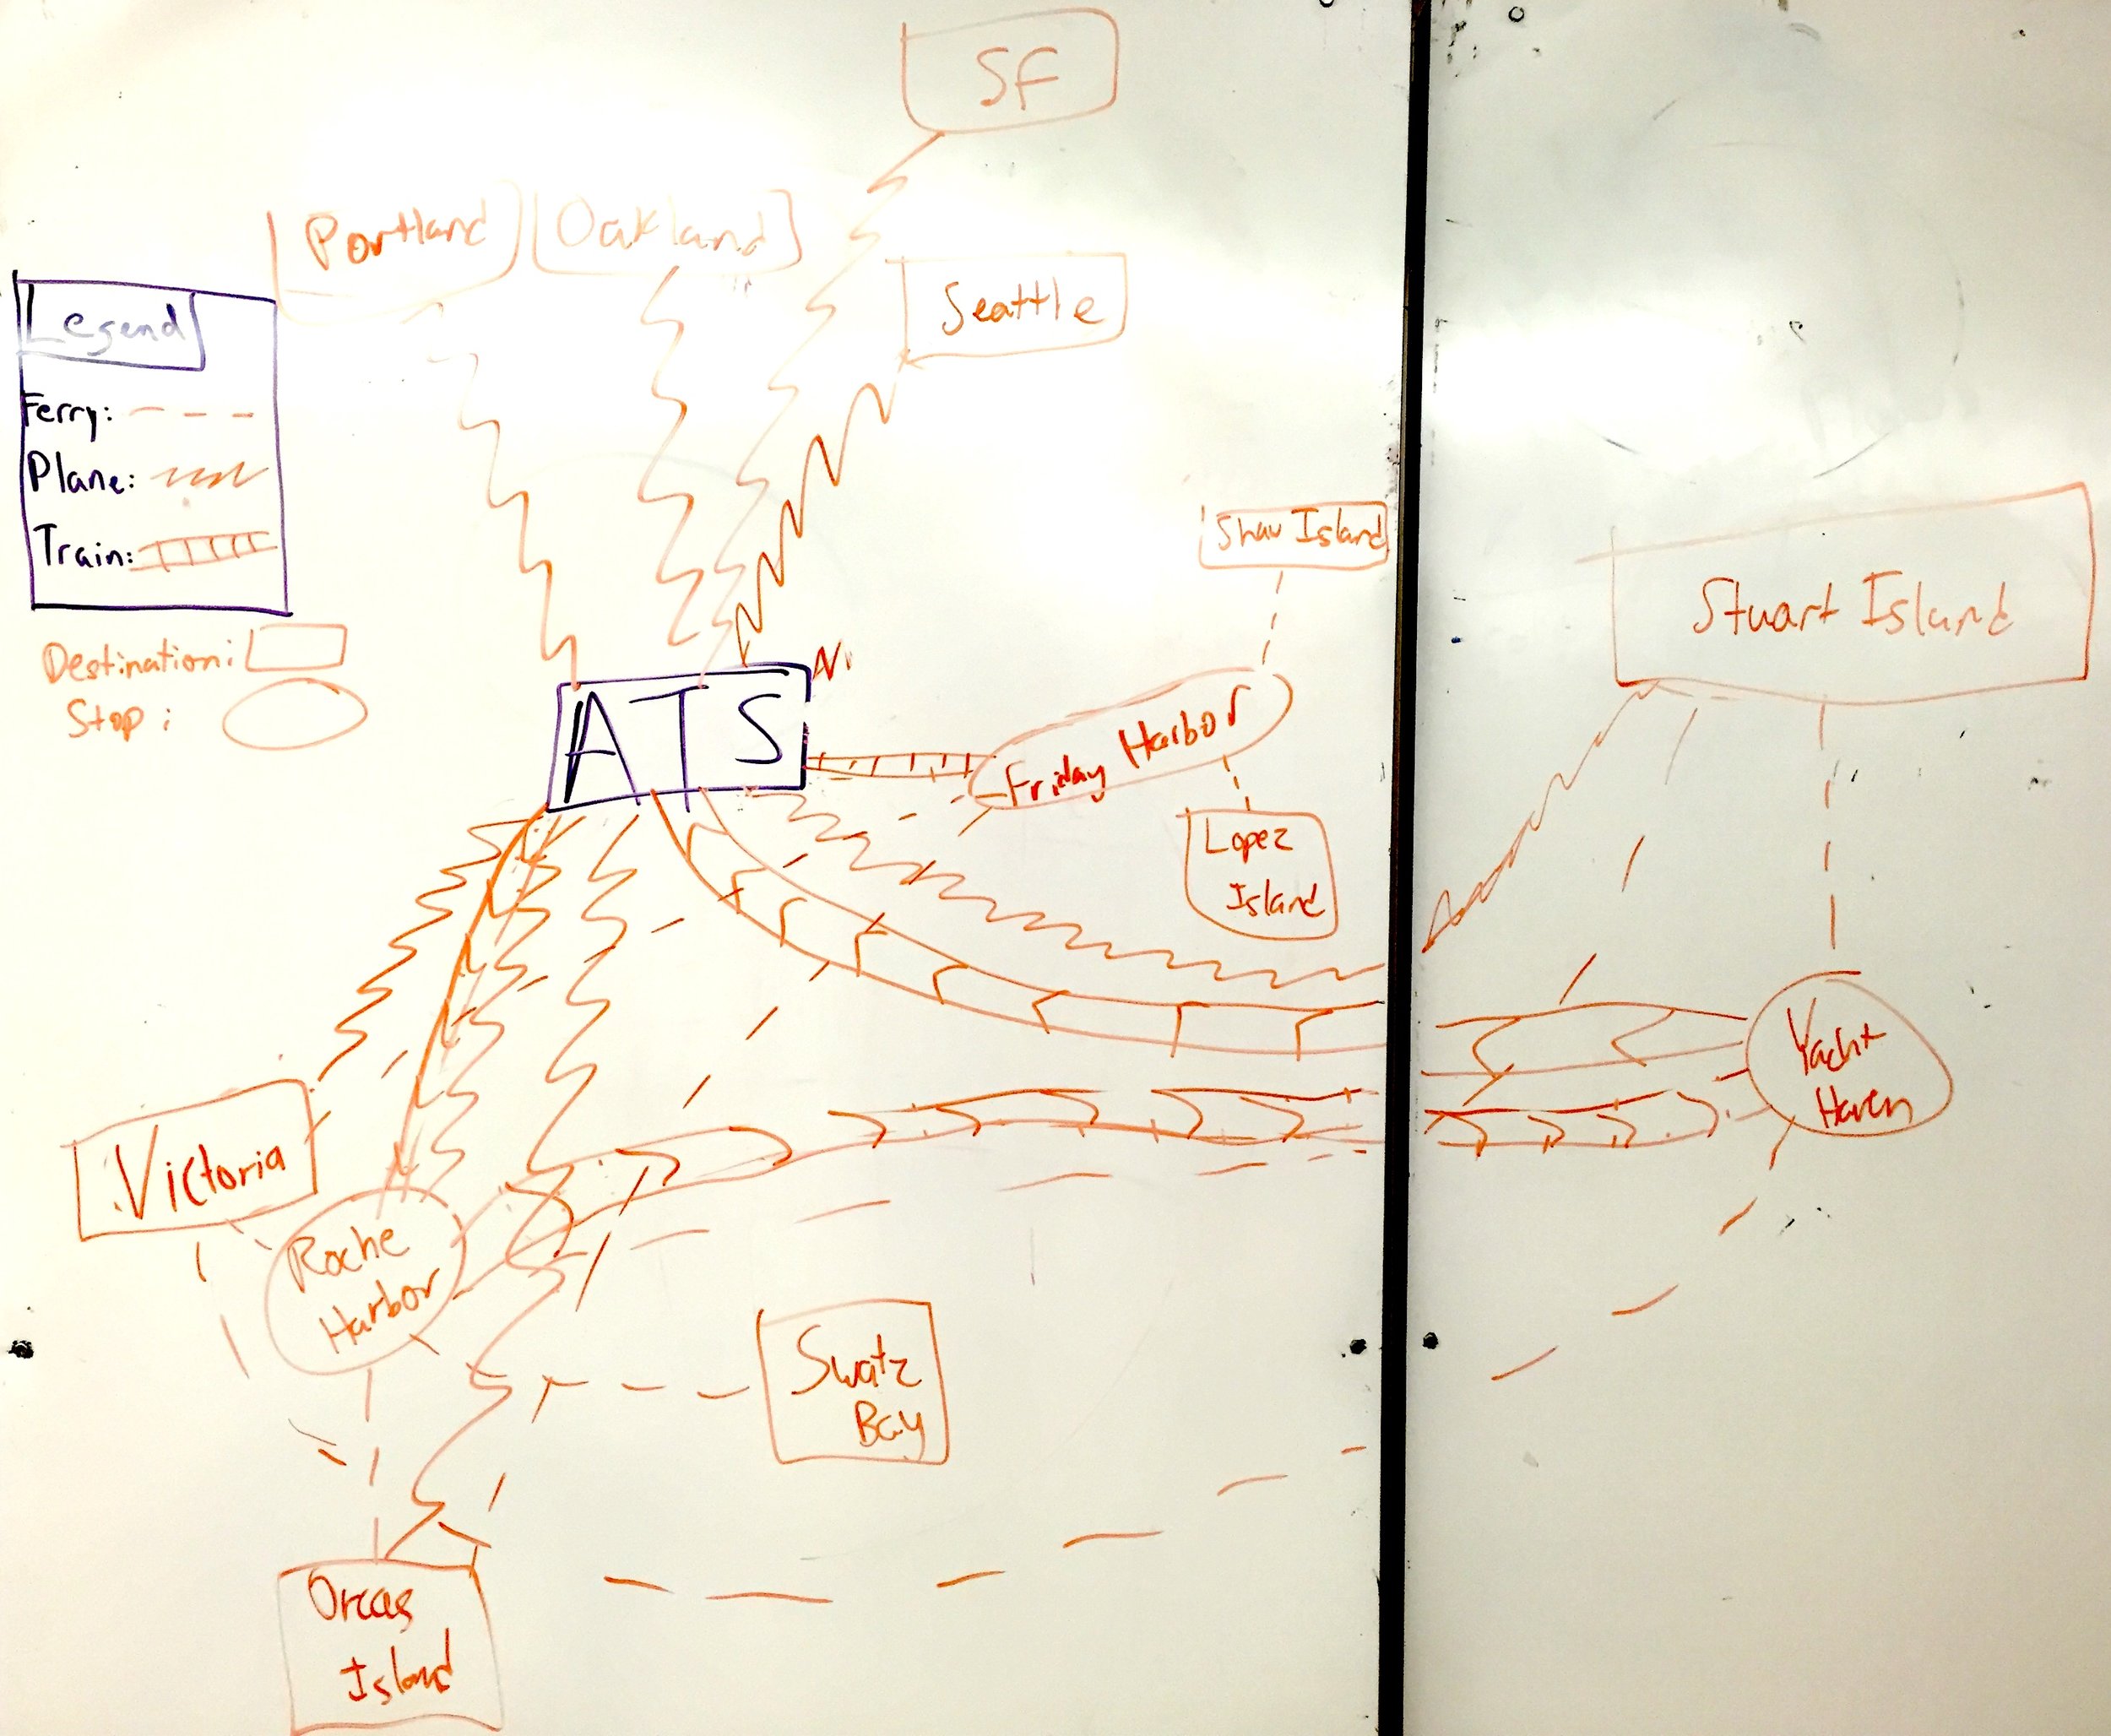 SF
Portland
Oakland
Seattle
Legend
Ferry:
Plane:
Train:
Destination:
Stop:
Shaw Island
Stuart Island
ATS
N
Friday Harbor
Lopez
Island
Yacht
Haven
Victoria
Roche
Harbor
Swatz
Bay
Orcas
Island